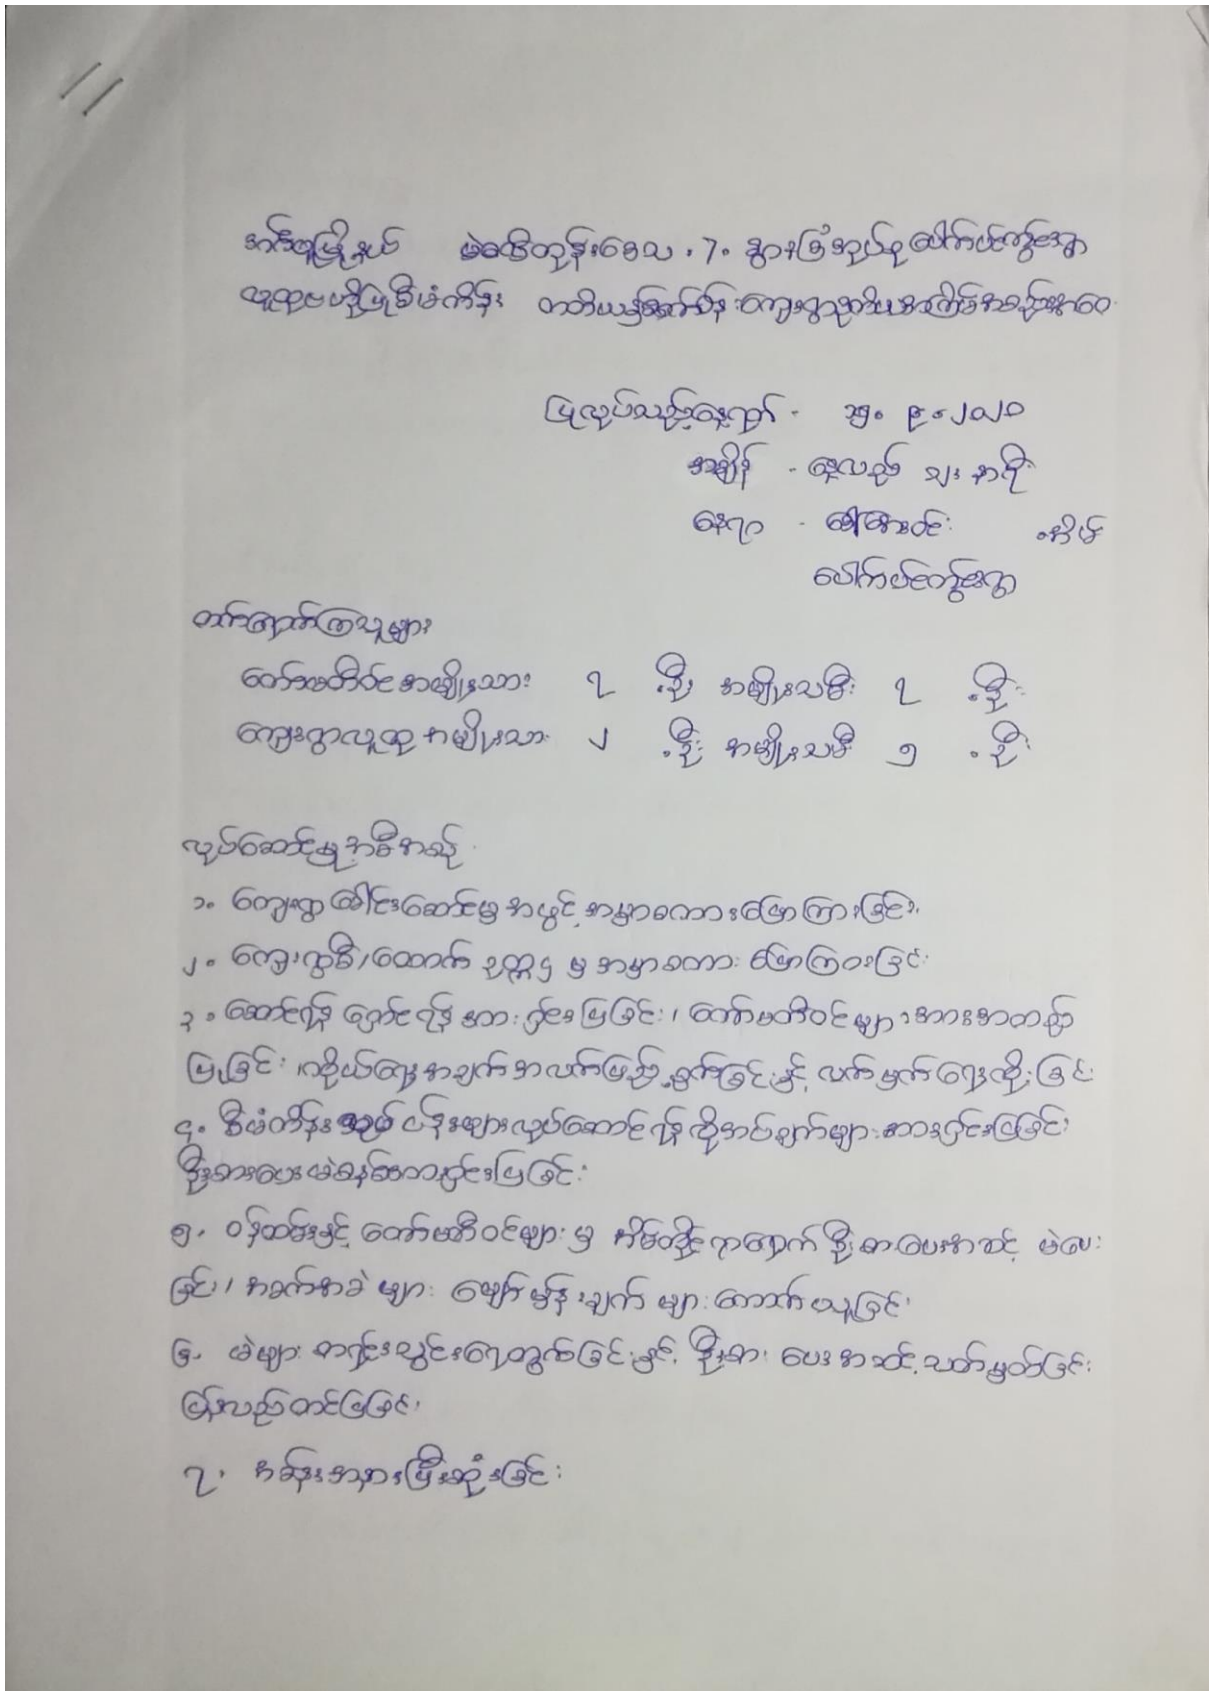 မြို့နယ် မဲခလိတုန်းဒေသ . 7. နွားခြံအုပ်စု ပေါက်ပင်ကွင်းရွာ
လူထုဗဟိုပြုစီမံကိန်း တတိယနှစ် ကျေးရွာဒုတိယအကြိမ်အစည်းအဝေး
ပြုလုပ်သည့်နေ့ရက် - ၉.၂၀၂၀
အချိန် - နေ့လည် ၁း နာရီ
နေရာ - ဒေါ်အေးဝင်း .အိမ်
ပေါက်ပင်ကွင်းရွာ
တက်ရောက်ကြသူများ
ကော်မတီဝင် အမျိုးသား ၇ .ဦး အမျိုးသမီး ၇ .ဦး
ကျေးရွာလူထု အမျိုးသား ၂ .ဦး အမျိုးသမီး ၅ .ဦး
လုပ်ဆောင်မှု အစီအစဉ်
၁. ကျေးရွာ ခေါင်းဆောင်မှ အဖွင့် အမှာစကားပြောကြားခြင်း
၂. ကျေးရွာစီ/ထောက် ဥက္ကဌ မှ အမှာစကား ပြောကြားခြင်း
၃. ဆောင်ရန် ရှောင်ရန် အား ရှင်းပြခြင်း၊ ကော်မတီဝင်များအားအတည်
ပြုခြင်း ၊ကိုယ်ရေးအချက်အလက်ဖြည့်သွက်ခြင်းနှင့် လက်မှတ်ရေးထိုးခြင်း
၄. စီမံကိန်း လုပ်ငန်းများလုပ်ဆောင်ရန် လိုအပ်ချက်များအားရှင်းပြခြင်း
ဦးစားပေးမဲစနစ်အားရှင်းပြခြင်း
၅. ဝန်ထမ်းနှင့် ကော်မတီဝင်များ မှ အိမ်တိုင်ရာရောက် ဦးစားပေးအဆင့် မဲပေး
ခြင်း၊ အခက်အခဲ များ မျှော်မှန်းချက် များ ကောက်ယူခြင်း
၆. မဲများ စာရင်းသွင်းရေတွက်ခြင်းနှင့် ဦးစား ပေးအဆင့် သတ်မှတ်ခြင်း
ပြန်လည်တင်ပြခြင်း
၇. အခန်းအနားပြီးဆုံးခြင်း